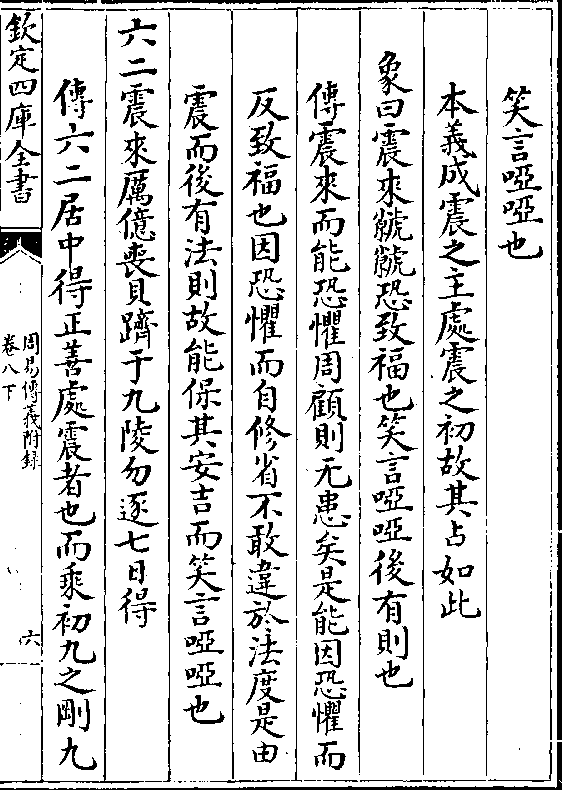 笑言啞啞也
本義成震之主處震之初故其占如此
象曰震來虩虩恐致福也笑言啞啞後有則也
傳震來而能恐懼周顧則无患矣是能因恐懼而
反致福也因恐懼而自修省不敢違於法度是由
震而後有法則故能保其安吉而笑言啞啞也
六二震來厲億喪貝躋于九陵勿逐七日得
傳六二居中得正善處震者也而乘初九之剛九
欽定四庫全書
周易傳義附錄
卷八下
六